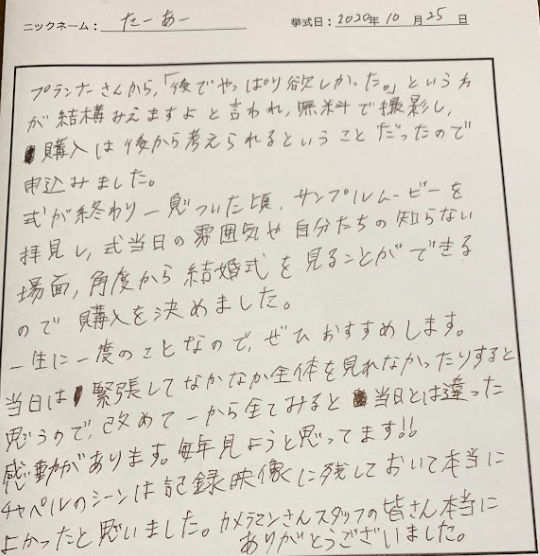 ニックネーム： たーあー 挙式日：2020年 10 月 25 日
プランナーさんから、「後でやっぱり欲しかった。」という方
が結構みえますよと言われ、無料で撮影し、
購入は後から考えられるということだったので
申込みました。
式が終わり一息ついた頃、サンプルムービーを
拝見し、式当日の雰囲気や自分たちの知らない
場面、角度から結婚式を見ることができる
ので購入を決めました。
一生に一度のことなので、ぜひおすすめします。
当日は緊張してなかなか全体を見れなかったりすると
思うので、改めて一から全てみると当日とは違った
感動があります。毎年見ようと思ってます!!
チャペルのシーンは記録映像に残しておいて本当に
よかったと思いました。カメラマンさんスタッフの皆さん本当に
ありがとうございました。